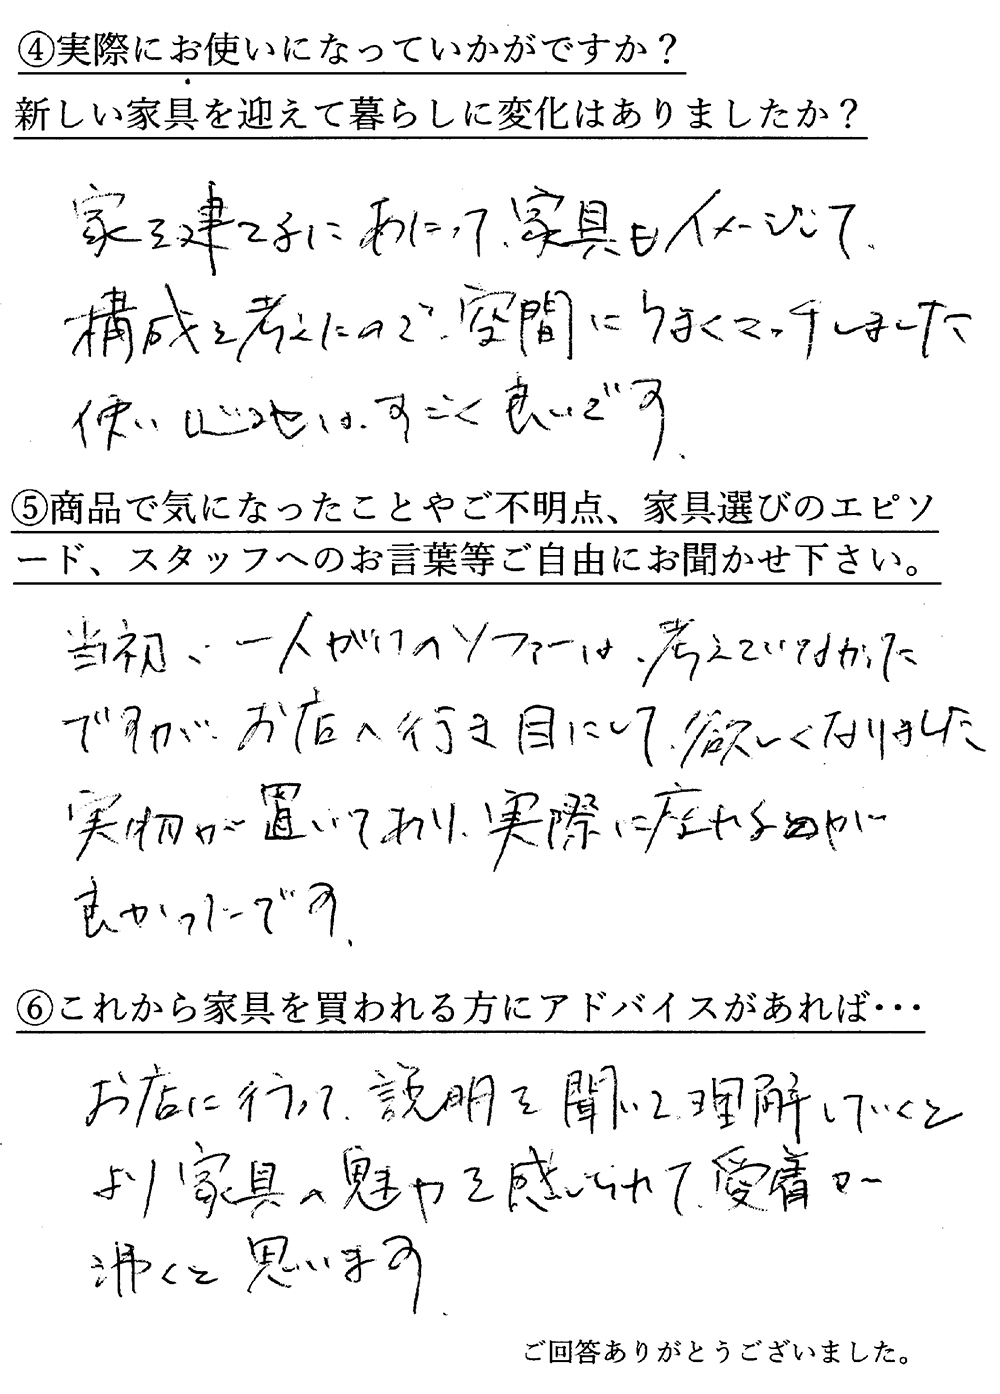 ④実際にお使いになっていかがですか？
新しい家具を迎えて暮らしに変化はありましたか？
家を建てるにあたって、家具もイメージして、
構成を考えたので、空間にうまくマッチしました
使い心地は、すごく良いです。
⑤商品で気になったことやご不明点、家具選びのエピソ
ード、スタッフへのお言葉等ご自由にお聞かせ下さい。
当初、一人がけのソファーは、考えていなかった
ですが、お店へ行き目にして、欲しくなりました
実物が置いてあり、実際に座れるのが
良かったです。
⑥これから家具を買われる方にアドバイスがあれば・・・
お店に行って、説明を聞いて、理解していくと
より家具へ魅力を感じられて、愛着が
沸くと思います。
ご回答ありがとうございました。